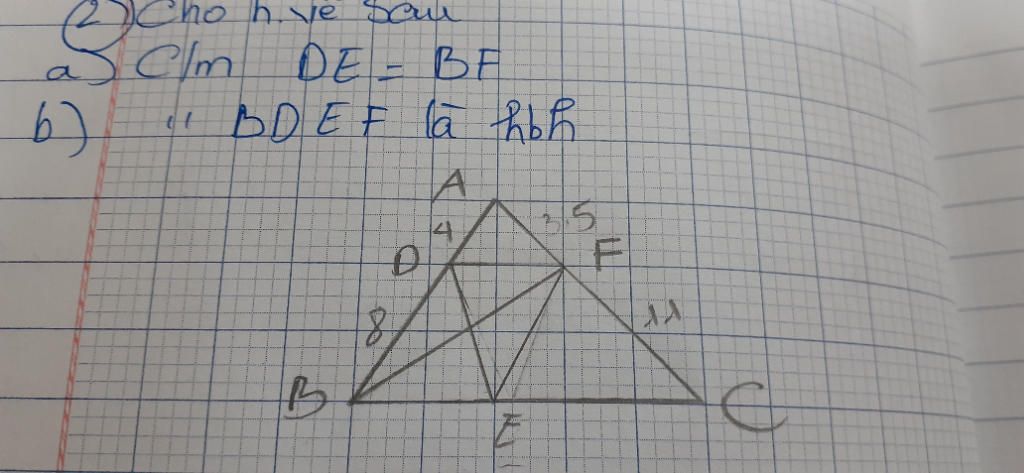 2) Cho h.vẽ sau
a) C/m DE = BF
b) " BDEF là hbh
A
4
3,5
D
F
8
11
B
C
E